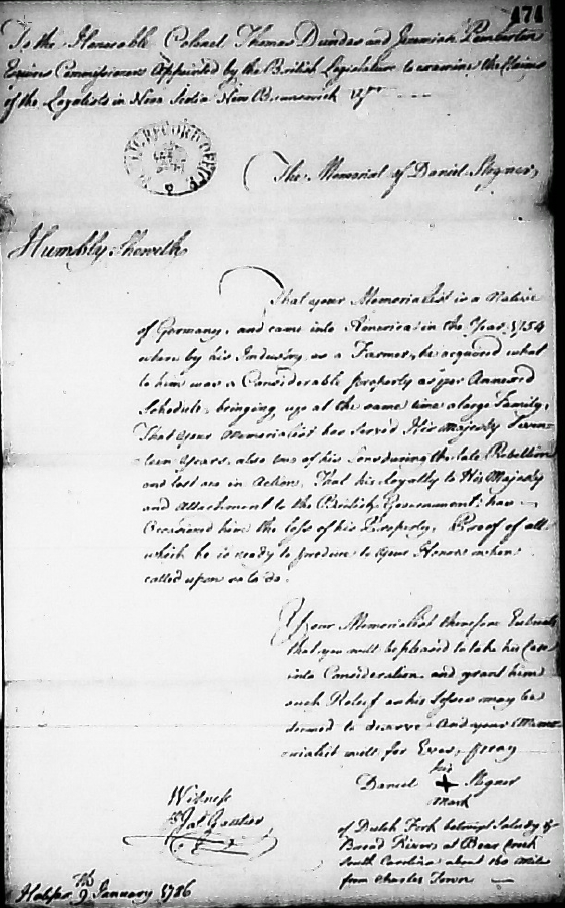 474
To the Honorable Colonel Thomas Dundas and Jeremiah Pemberton
Esquires Commissioners Appointed by the British Legislature to examine the Claims
of the Loyalists in Nova Scotia New Brunswick &ca
PUBLIC RECORD OFFICE
The Memorial of Daniel Stegner,
Humbly Sheweth
That your Memorialist is a Native
of Germany, and came into America in the Year 1754
where by his Industry, as a Farmer, he acquired what
to him was a Considerable property as per Annexed
Schedule, bringing up at the same time a large Family,
That your Memorialist has served His Majesty
teen Years, also two of his Sons during the late Rebellion
and lost one in Action, That his Loyalty to His Majesty
and attachment to the British Government: has
Occasioned him the loss of his Property, Proof of all
which he is ready to produce to your Honors when
called upon so to do.
Your Memorialist therefore Entreats
that you will be pleased to take his Case
into Consideration and grant him
such Relief as his losses may be
deemed to deserve. And your Mem-
orialist will for Ever, pray
his
Daniel + Stegner
mark
Witness
Gautier
of Dutch Fork betwixt Saludy &
Broad Rivers at Bear Creek
South Carolina about 100 Mile
from Charles Town
Halifax 9th January 1786